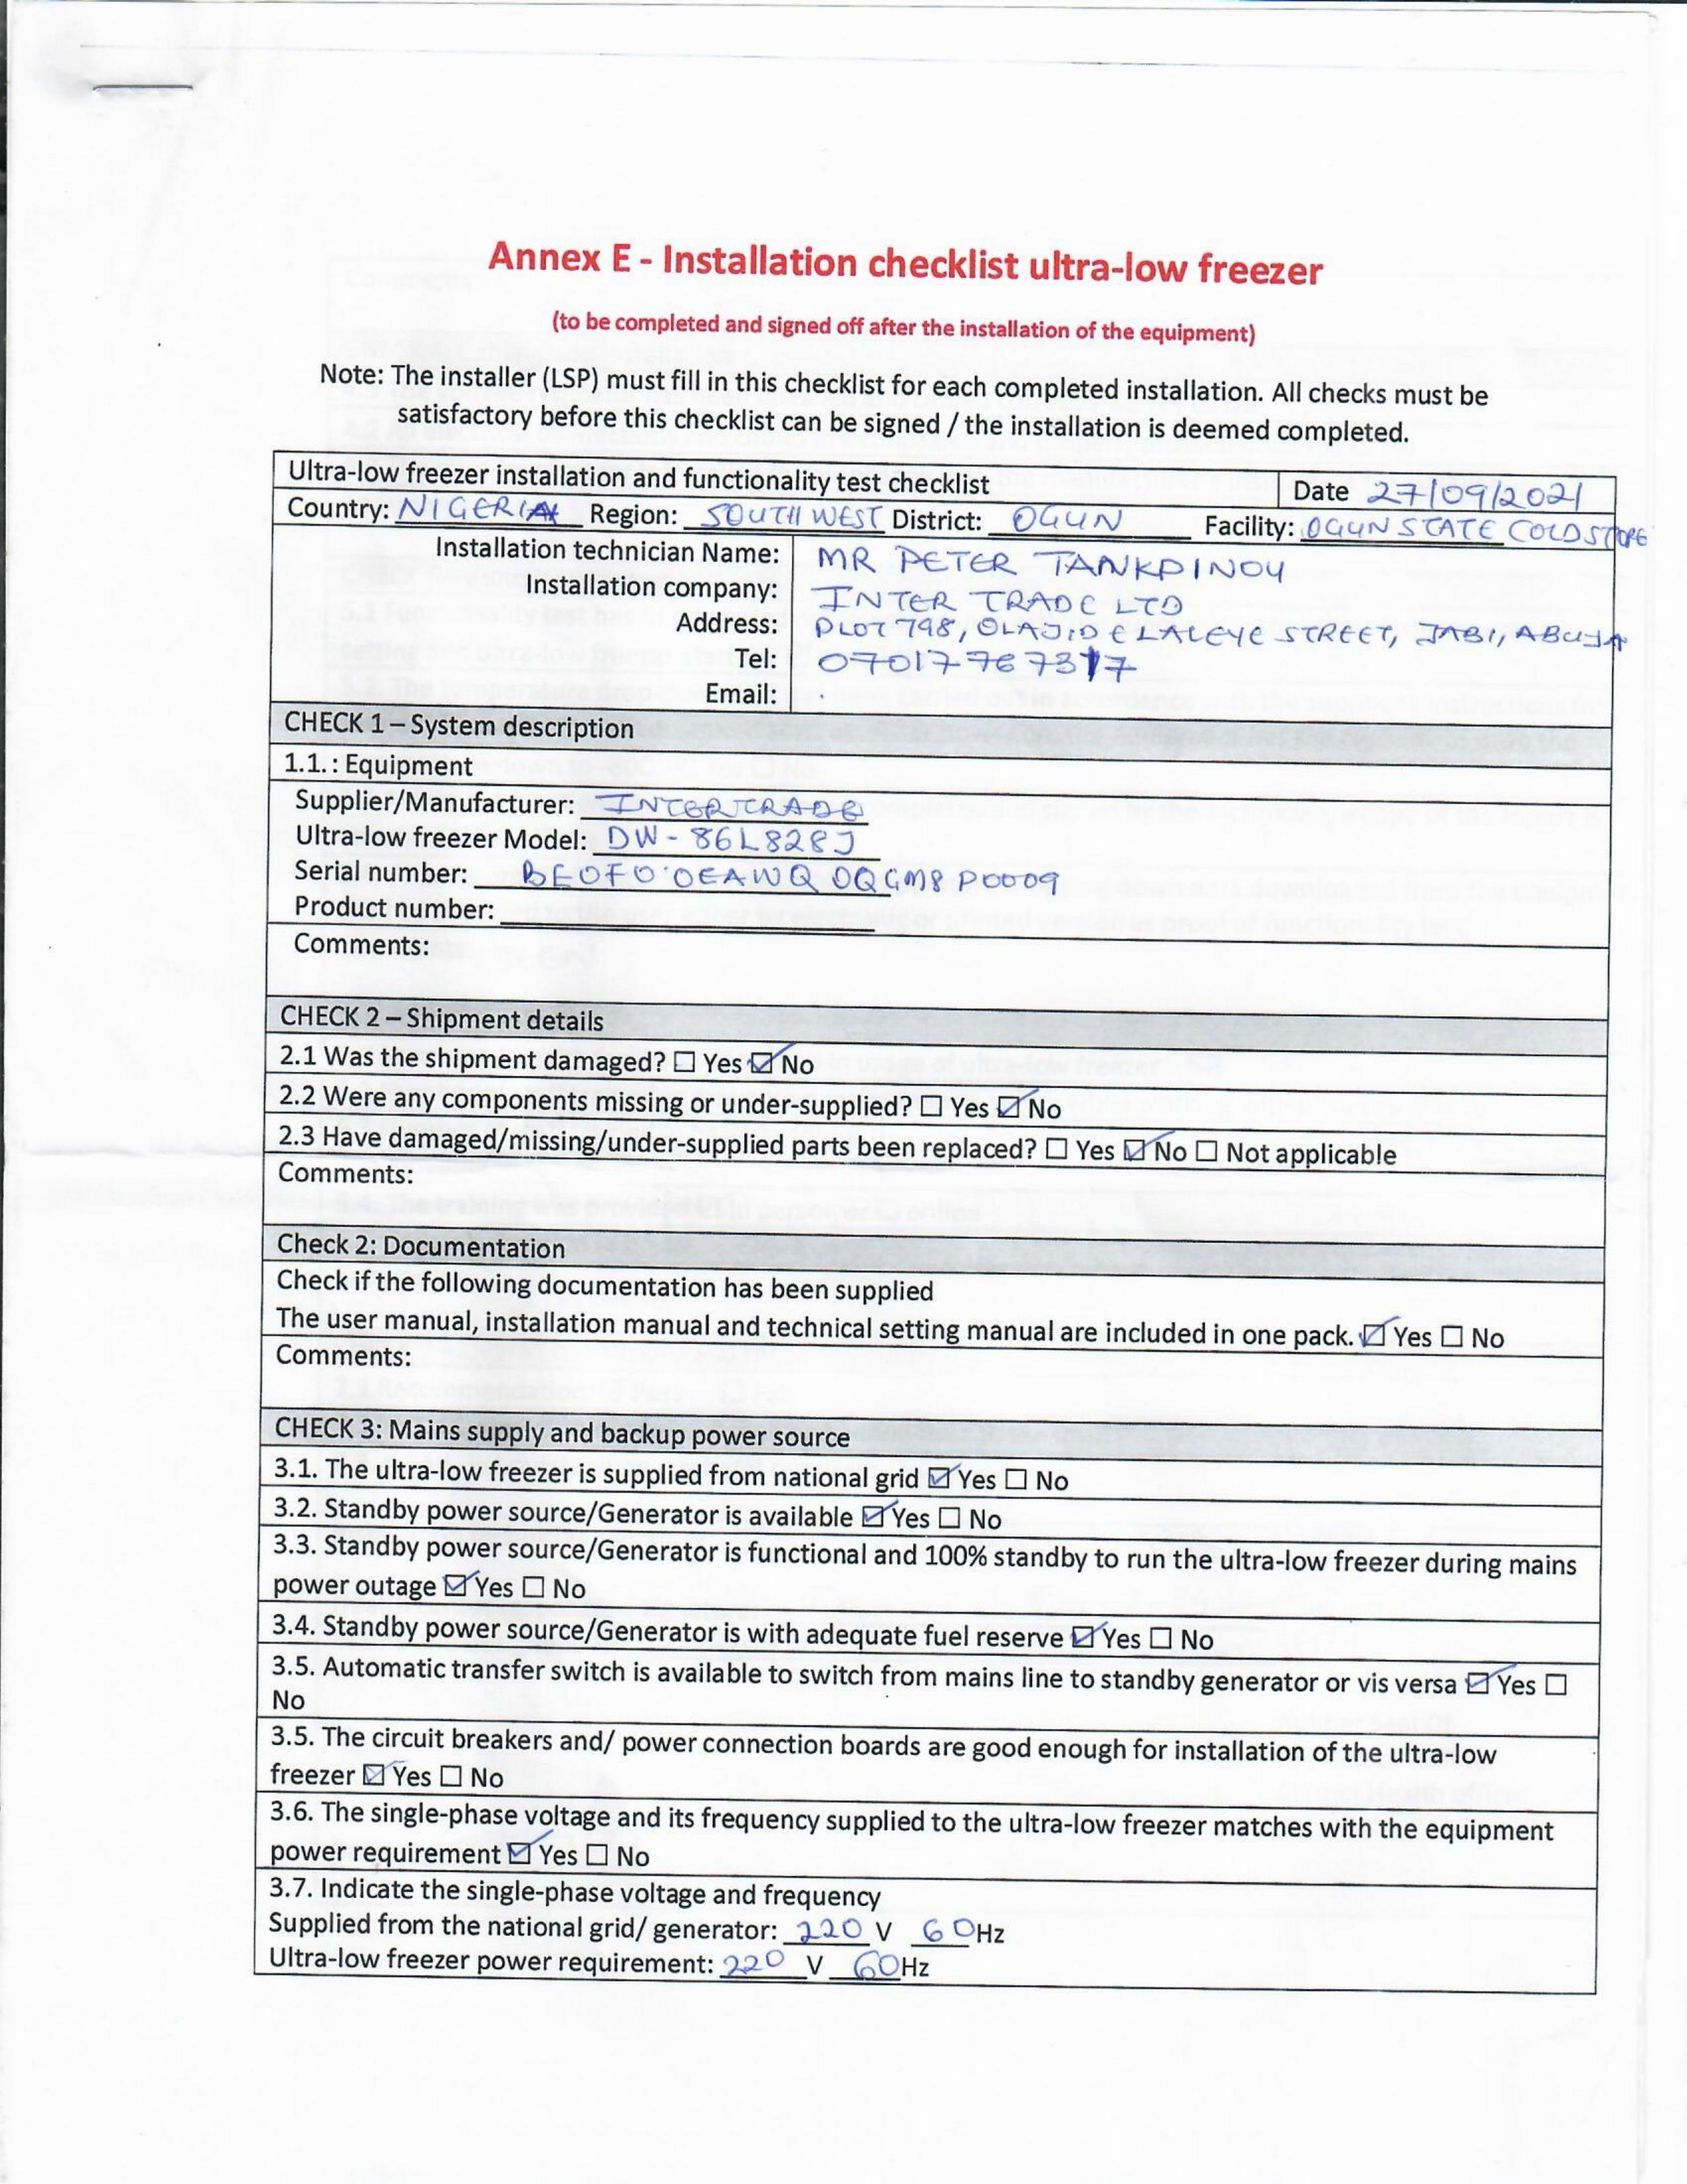 Annex E - Installation checklist ultra-low freezer
(to be completed and signed off after the installation of the equipment)
Note: The installer (LSP) must fill in this checklist for each completed installation. All checks must be
satisfactory before this checklist can be signed / the installation is deemed completed.
Ultra-low freezer installation and functionality test checklist Date 27/09/2021
Country: NIGERIA Region: SOUTH WEST District: OGUN Facility: OGUN STATE COLDSTORE
Installation technician Name: MR PETER TANKPINOU
Installation company: INTER TRADE LTD
Address: PLOT 798, OLAJIDE LALEYE STREET, JABI, ABUJA
Tel: 07017767317
Email:
CHECK 1 – System description
1.1.: Equipment
Supplier/Manufacturer: INTERTRADE
Ultra-low freezer Model: DW-86L828J
Serial number: BEOFOOEAWQOQGM8P0009
Product number:
Comments:
CHECK 2 – Shipment details
2.1 Was the shipment damaged? ☐ Yes ☑ No
2.2 Were any components missing or under-supplied? ☐ Yes ☑ No
2.3 Have damaged/missing/under-supplied parts been replaced? ☐ Yes ☑ No ☐ Not applicable
Comments:
Check 2: Documentation
Check if the following documentation has been supplied
The user manual, installation manual and technical setting manual are included in one pack. ☑ Yes ☐ No
Comments:
CHECK 3: Mains supply and backup power source
3.1. The ultra-low freezer is supplied from national grid ☑ Yes ☐ No
3.2. Standby power source/Generator is available ☑ Yes ☐ No
3.3. Standby power source/Generator is functional and 100% standby to run the ultra-low freezer during mains
power outage ☑ Yes ☐ No
3.4. Standby power source/Generator is with adequate fuel reserve ☑ Yes ☐ No
3.5. Automatic transfer switch is available to switch from mains line to standby generator or vis versa ☑ Yes ☐
No
3.5. The circuit breakers and/ power connection boards are good enough for installation of the ultra-low
freezer ☑ Yes ☐ No
3.6. The single-phase voltage and its frequency supplied to the ultra-low freezer matches with the equipment
power requirement ☑ Yes ☐ No
3.7. Indicate the single-phase voltage and frequency
Supplied from the national grid/ generator: 220 V 60Hz
Ultra-low freezer power requirement: 220 V 60Hz